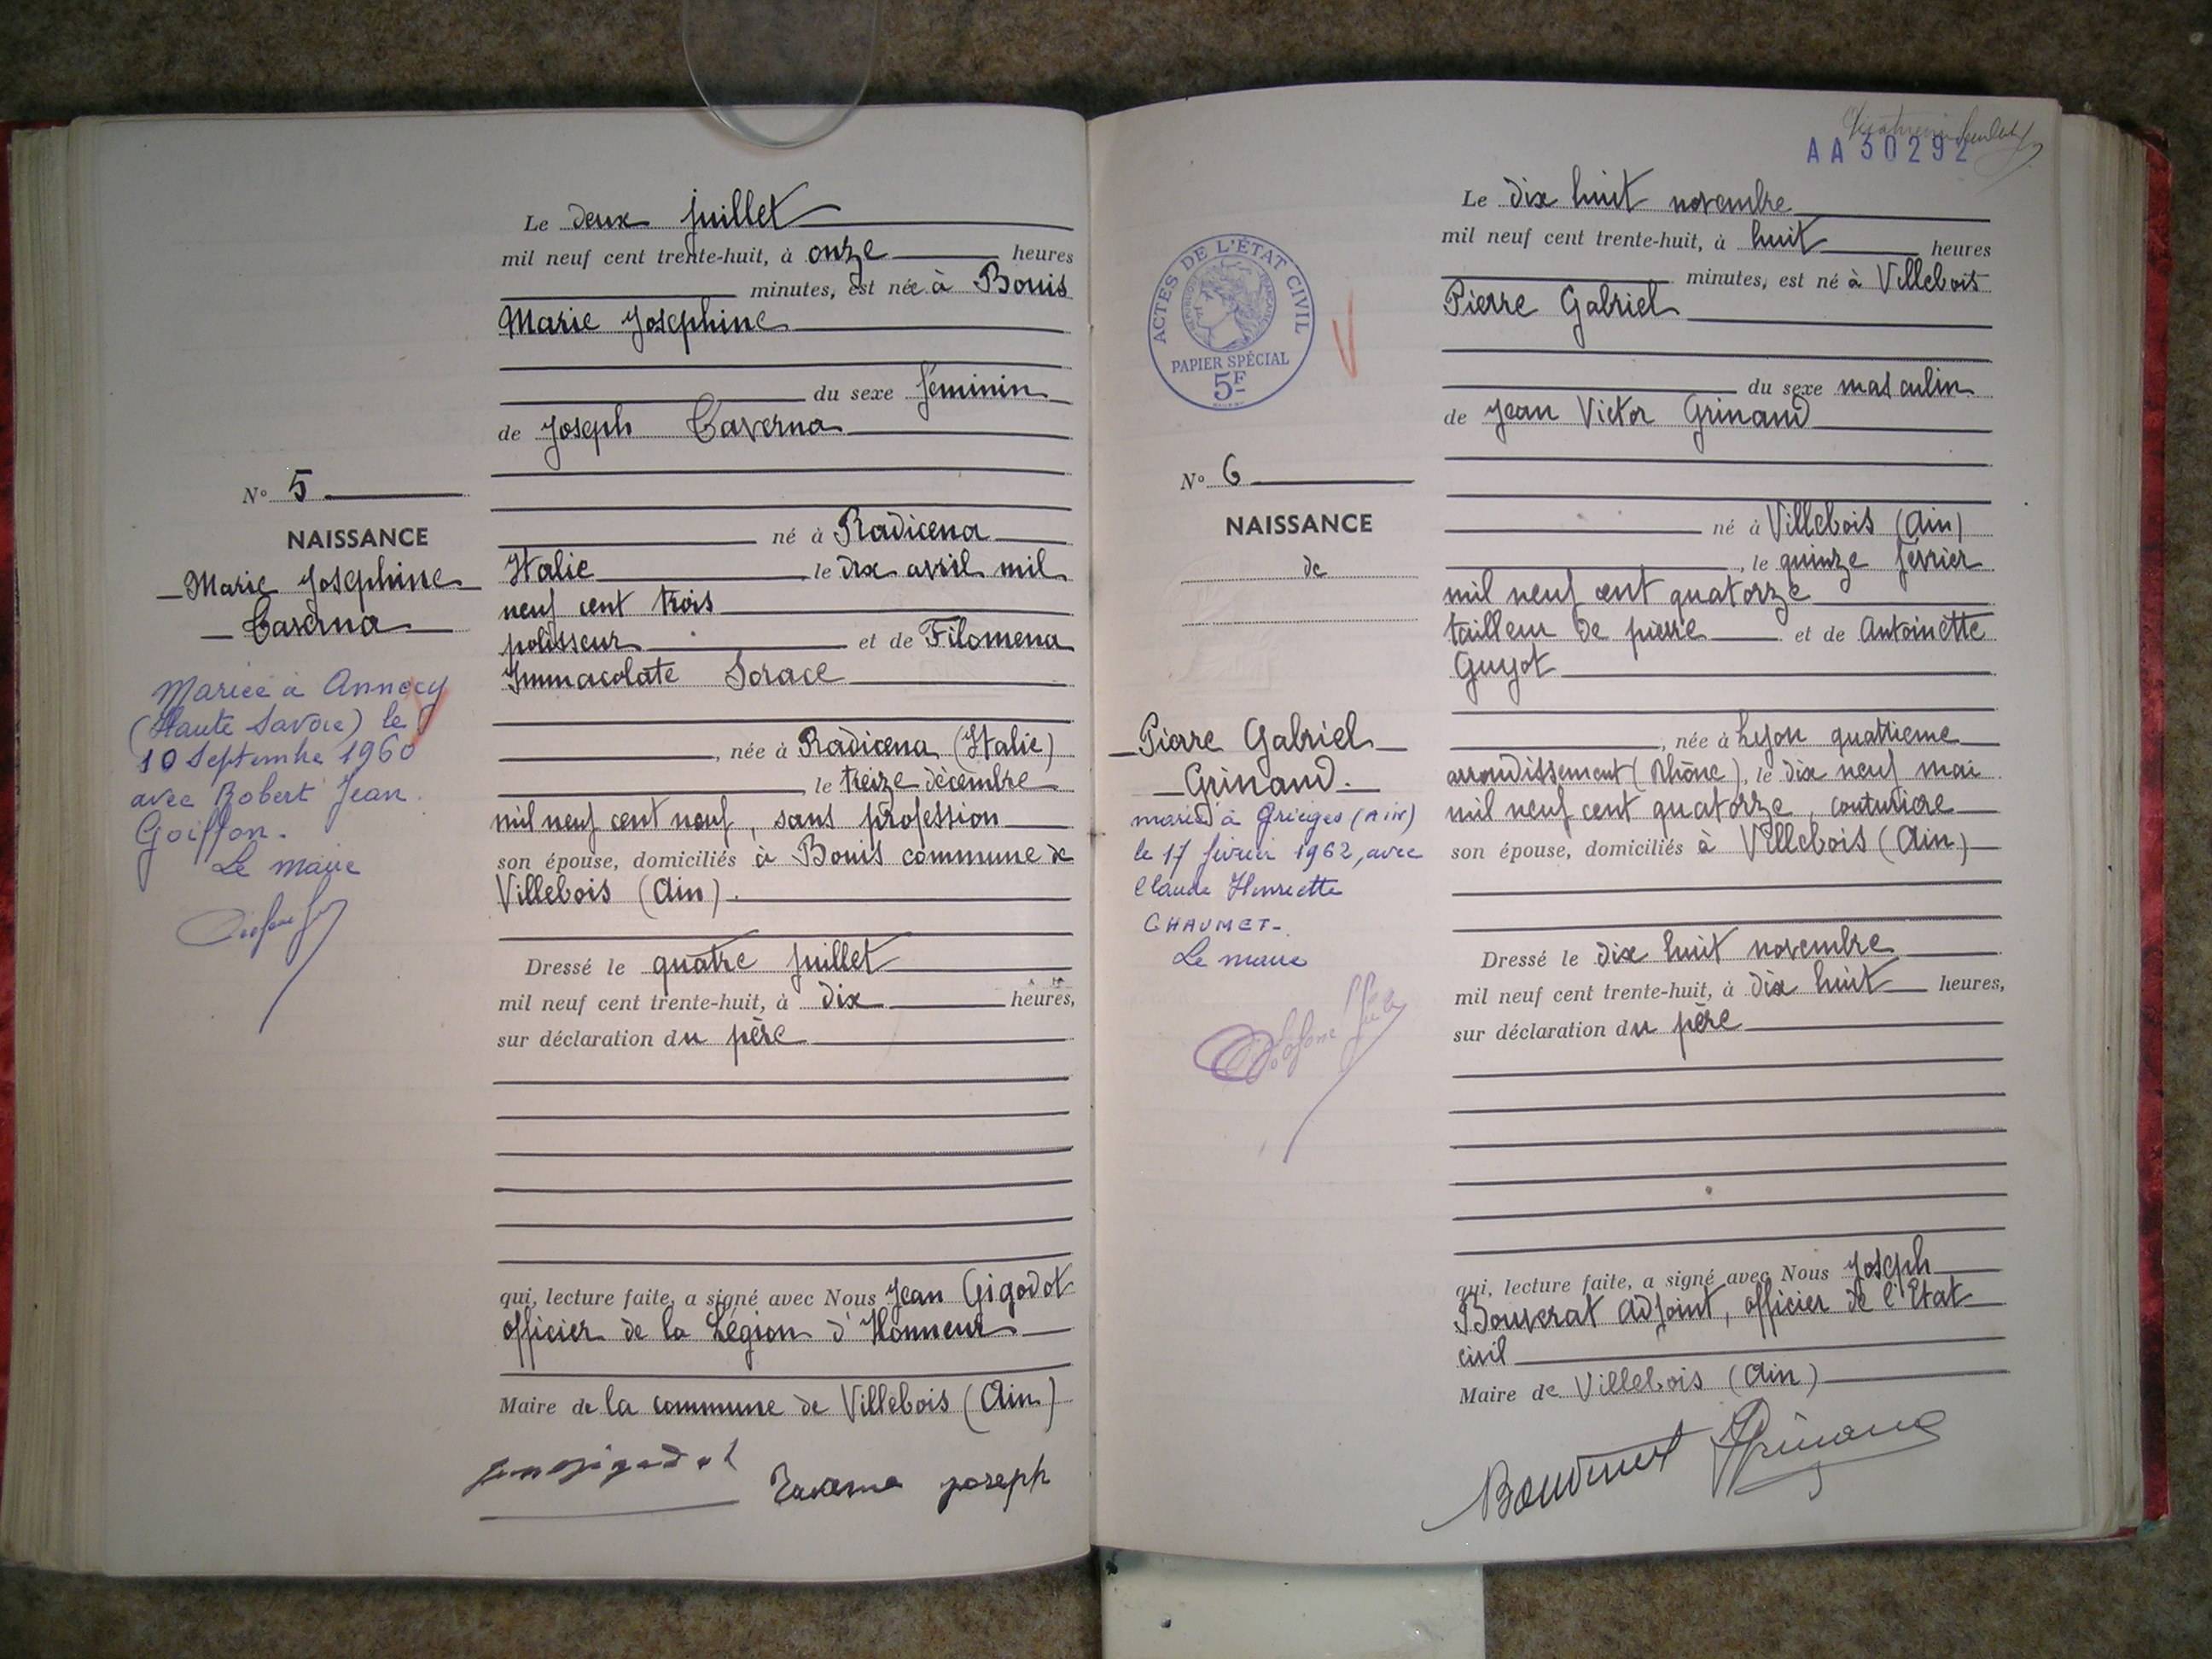 Le deux juillet
mil neuf cent trente-huit, à onze heures
minutes, est née à Bouis
Marie Josephine
du sexe féminin
de Joseph Taverna
né à Radicena
Italie le dix avril mil
neuf cent trois
polisseur et de Filomena
Immacolate Sorace
, née à Radicena (Italie)
, le treize décembre
mil neuf cent neuf, sans profession
son épouse, domiciliés à Bouis commune de
Villebois (Ain).
Dressé le quatre juillet
mil neuf cent trente-huit, à dix heures,
sur déclaration du père
qui, lecture faite, a signé avec Nous Jean Gigodot
officier de la Légion d'Honneur
Maire de la commune de Villebois (Ain)
Jean Gigodot
Taverna Joseph
N° 5
NAISSANCE
Marie Josephine
Taverna
Mariée à Annecy
(Haute Savoie) le
10 Septembre 1960
avec Robert Jean
Goiffon.
Le maire
AA30292
Le dix huit novembre
mil neuf cent trente-huit, à huit heures
minutes, est né à Villebois
Pierre Gabriel
du sexe masculin
de Jean Victor Grinand
né à Villebois (Ain)
, le quinze février
mil neuf cent quatorze
tailleur de pierre et de Antoinette
Guyot
, née à Lyon quatrieme
arrondissement (Rhône), le dix neuf mai
mil neuf cent quatorze, couturiere
son épouse, domiciliés à Villebois (Ain)
Dressé le dix huit novembre
mil neuf cent trente-huit, à dix huit heures,
sur déclaration du père
qui, lecture faite, a signé avec Nous Joseph
Bouverat Adjoint, officier de l'Etat
civil
Maire de Villebois (Ain)
Bouverat Grinand
ACTES DE L'ÉTAT CIVIL
RÉPUBLIQUE FRANÇAISE
PAPIER SPÉCIAL
5F
N° 6
NAISSANCE
de
Pierre Gabriel
Grinand.
marié à Grièges (Ain)
le 17 février 1962, avec
Claude Henriette
CHAUMET.
Le maire